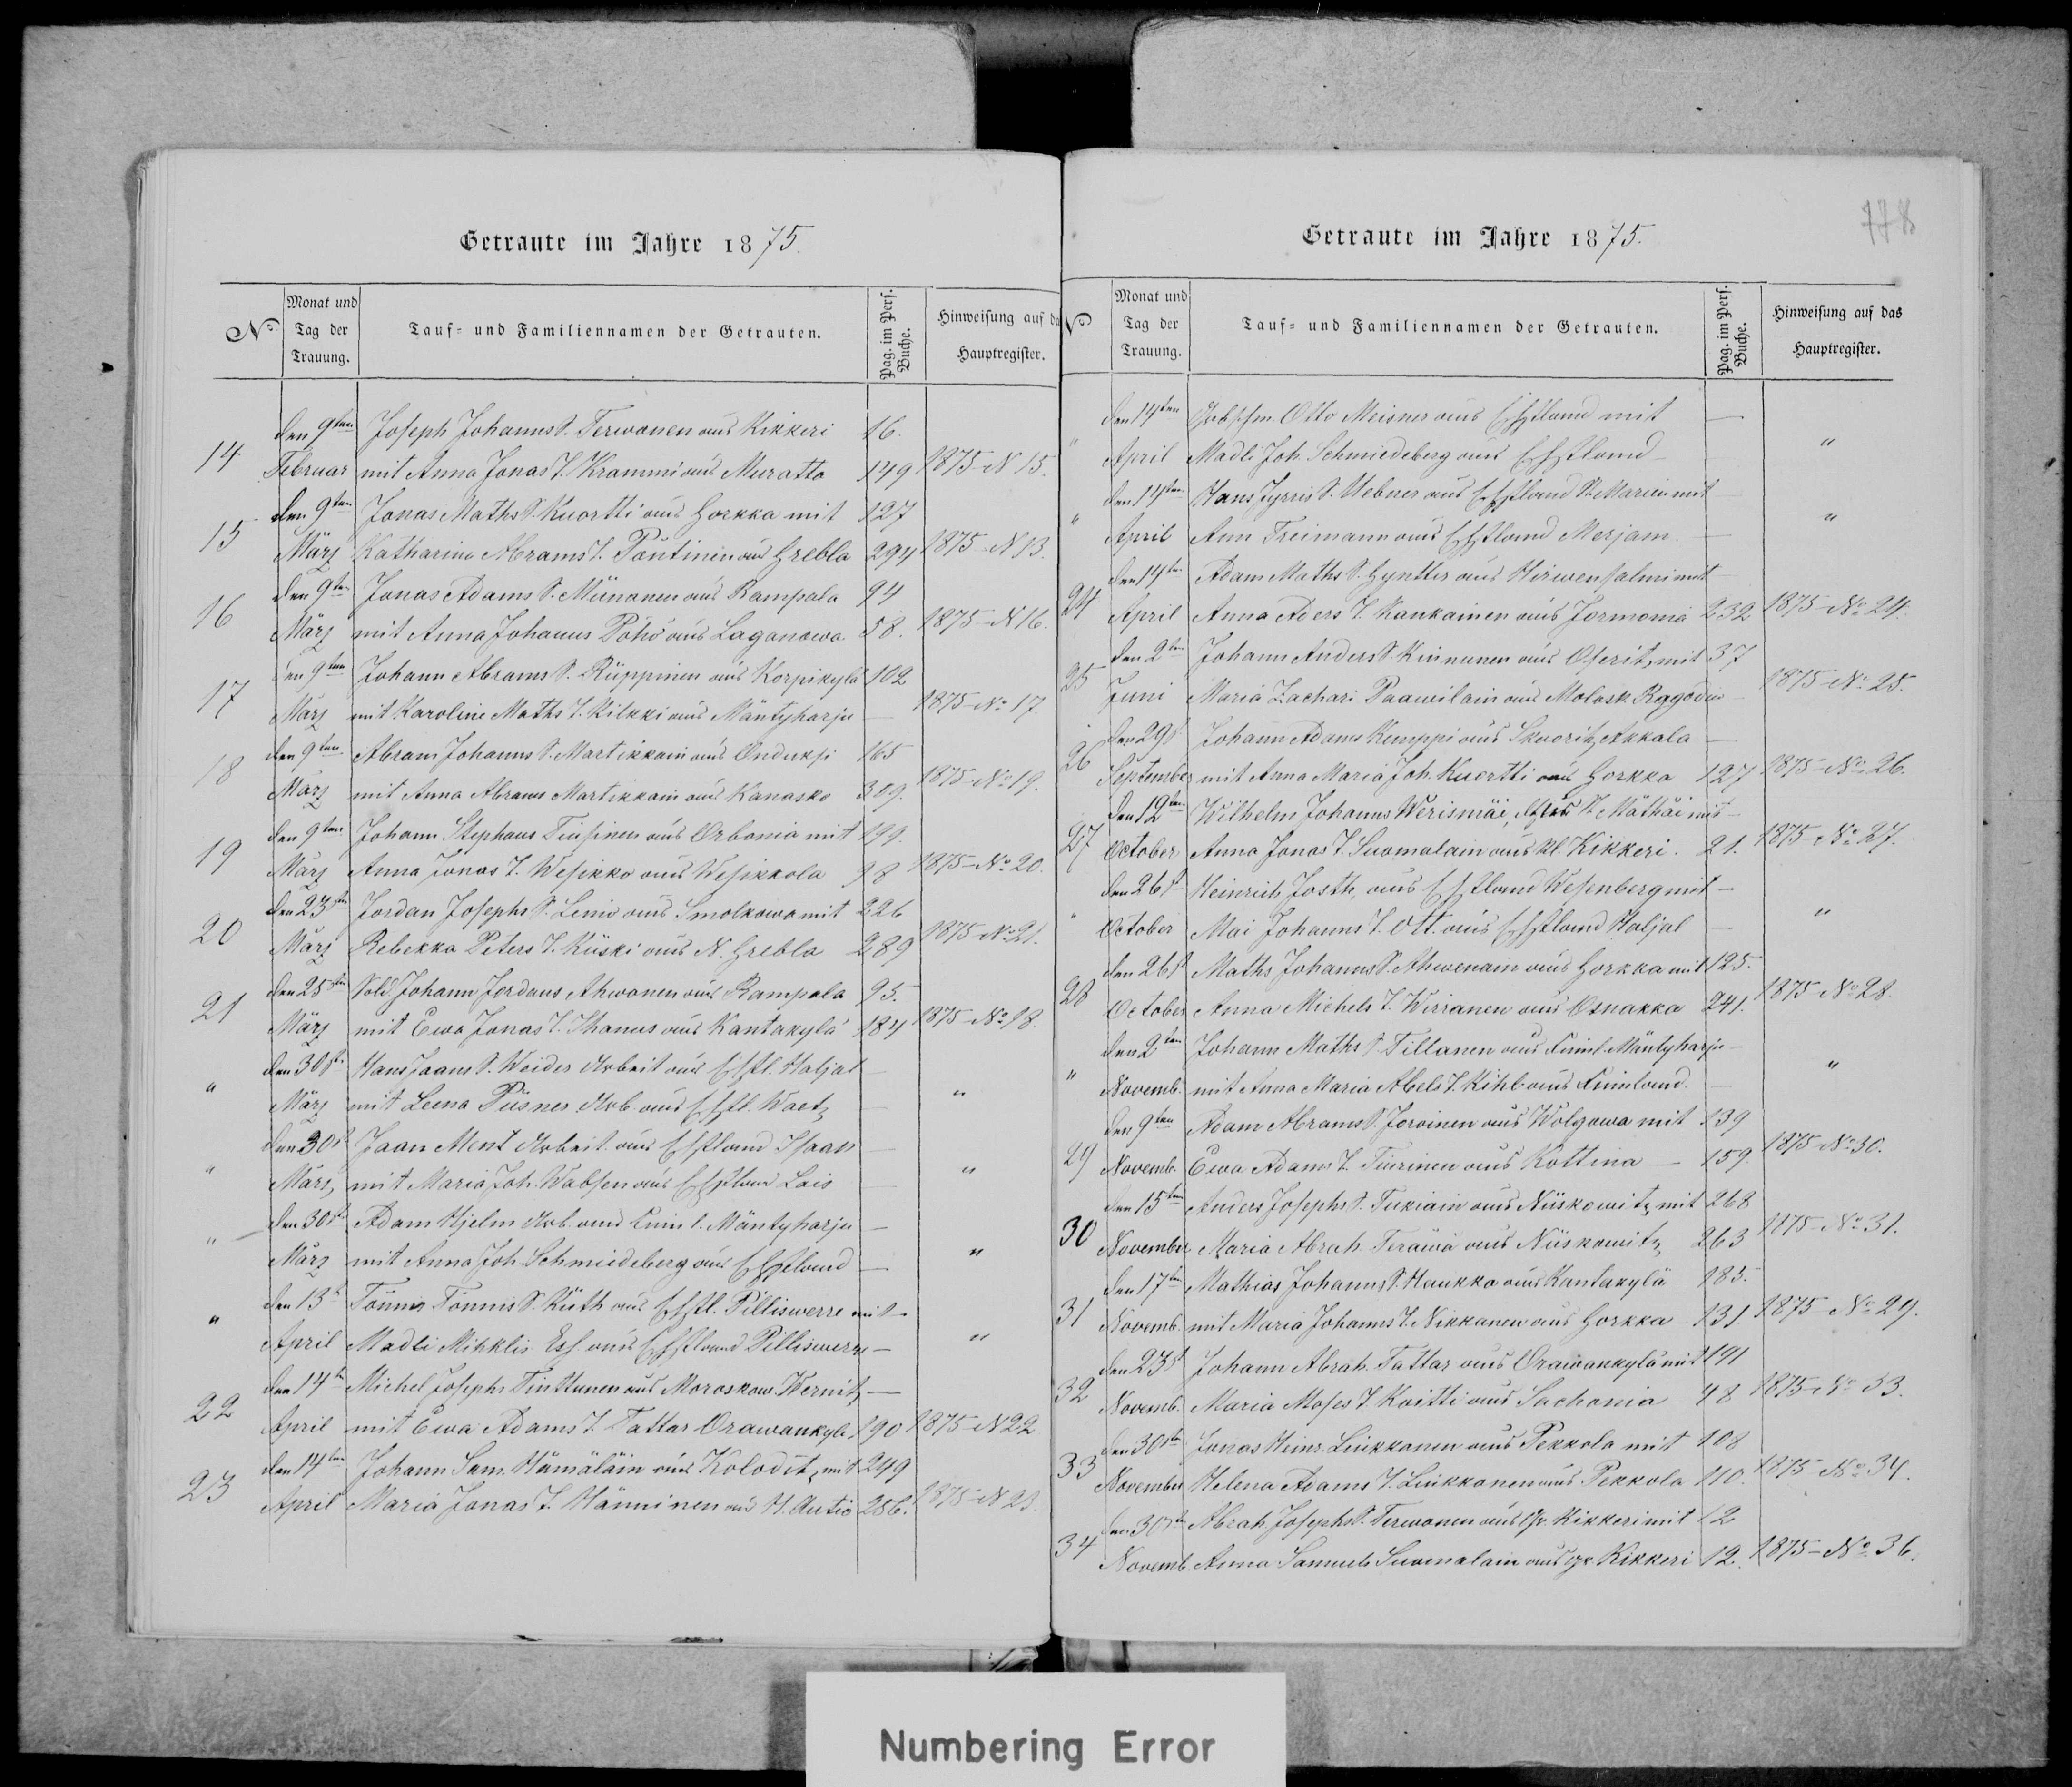 Getraute im Jahre 1875.
No
Monat und Tag der Trauung.
Tauf- und Familiennamen der Getrauten.
Pag. im Pers. Buche.
Hinweisung auf da
Hauptregister.
den 9ten Joseph Johanns S. Terwonen aus Kikkeri 16.
14 Februar mit Anna Jonas T. Krammi aus Muratta 149 1875-N 15.
den 9ten Jonas Maths S. Kuortti aus Gorkka mit 127
15 März Katharina Abrams T. Pöntinen aus Grebla 294 1875-N 13.
den 9ten Jonas Adams S. Münonen aus Rampala 94
16 März mit Anna Johanns Pöhö aus Laganowa 58. 1875-N 16.
den 9ten Johann Abrams S. Rüppinen aus Korpikylä 102
17 März mit Karoline Maths T. Kilkki aus Mäntyharju — 1875-No 17
den 9ten Abram Johanns S. Martikkain aus Onduksi 165
18 März mit Anna Abrams Martikkain aus Kanasko 309. 1875-No 19.
den 9ten Johann Stephans Tiusinen aus Orbonia mit 199.
19 März Anna Jonas T. Wesikko aus Wesikkola 98 1875-No 20.
den 23sten Jordan Josephs S. Lenis aus Smolkowo mit 226
20 März Rebekka Peters T. Küski aus N. Grebla 289 1875-No 21.
den 25sten Sold. Johann Jordans Ahwonen aus Rampala 95.
21 März mit Ewa Jonas T. Ihanus aus Kantakylä 184 1875-No 18.
den 30st. Hans Jaans S. Weider Arbeit aus Ehstl. Haljal —
" März mit Leena Püsner Arb. aus Ehstl. Waetz — "
den 30st Jaan Ment Arbeit. aus Ehstland Isaak —
" März mit Maria Joh. Wabsen aus Ehstland Lais — "
den 30st. Adam Hjelm Arb. aus Finnl. Mäntyharju —
" März mit Anna Joh. Schmiedeberg aus Ehstland — "
den 13t Tönnis Tönnis S. Küth aus Ehstl. Pilliswerre mit —
" April Madli Mihklis Ess aus Ehstland Pilliswerre — "
den 14t Michel Josephs Tinttunen aus Moroskow. Wernitz —
22 April mit Ewa Adams T. Tattar Orawankylä 190 1875-N 22
den 14ten Johann Sam. Hämäläin aus Koloditz mit 249
23 April Maria Jonas T. Hänninen aus H. Autio 286. 1875-N 23.
778
Getraute im Jahre 1875.
No
Monat und Tag der Trauung.
Tauf- und Familiennamen der Getrauten.
Pag. im Pers. Buche.
Hinweisung auf das
Hauptregister.
den 14ten Otto Meisner aus Ehstland mit —
" April Madli Joh. Schmiedeberg aus Ehstland — "
den 14ten Hans Jyrris S. Uebner aus Ehstland St. Marien mit
" April Ann Freimann aus Ehstland Merjam. — "
den 14ten Adam Maths S. Gynther aus Hirwensalmi mit —
24 April Anna Aders T. Kankainen aus Jormonia 232 1875-No 24.
den 2ten Johann Anders S. Kinnunen aus Oseritz mit 37
25 Juni Maria Zachari Paawilain aus Molosk. Ragodin — 1875-No 25.
den 29st Johann Adams Kemppi aus Skworitz Akkala —
26 September mit Anna Maria Joh. Kuortti aus Gorkka 127 1875-No 26.
den 12ten Wilhelm Johanns Werismäi, St. Mathäi mit —
27 October Anna Jonas T. Suomalain aus kl. Kikkeri. 21. 1875-No 27.
den 26st Heinrich Josth, aus Ehstland Wesenberg mit —
" October Mai Johanns T. Ott. aus Ehstland Haljal — "
den 26st Maths Johanns S. Ahwenain aus Gorkka mit 125.
28 October Anna Michels T. Wirianen aus Osnakka 241. 1875-No 28.
den 2ten Johann Maths S. Tillanen aus Finnl. Mäntyharju —
" Novemb. mit Anna Maria Abels T. Kihl aus Finnland. — "
den 9ten Adam Abrams S. Jeroinen aus Wolgowa mit 139
29 Novemb. Ewa Adams T. Tiurinen aus Kottina — 159. 1875-No 30.
den 15ten Anders Josephs S. Tukiain aus Niiskowitz mit 268
30 November Maria Abrah. Teräwä aus Niiskowitz 263 1875-No 31.
den 17ten Mathias Johanns S. Haukka aus Kantakylä 185.
31 Novemb. mit Maria Johanns T. Nikkanen aus Gorkka 131 1875-No 29.
den 23st Johann Abrah. Tattar aus Orawankylä mit 191
32 Novemb. Maria Moses T. Koitti aus Sachonia 48 1875-No 33.
den 30sten Jonas Heinr. Liukkonen aus Pekkola mit 108
33 November Helena Adams T. Liukkonen aus Pekkola 110. 1875-No 34.
den 30st Abrah. Josephs S. Terwonen aus Gr. Kikkeri mit 12
34 Novemb. Anna Samuels Suomalain aus gr. Kikkeri 12. 1875-No 36.
Numbering Error